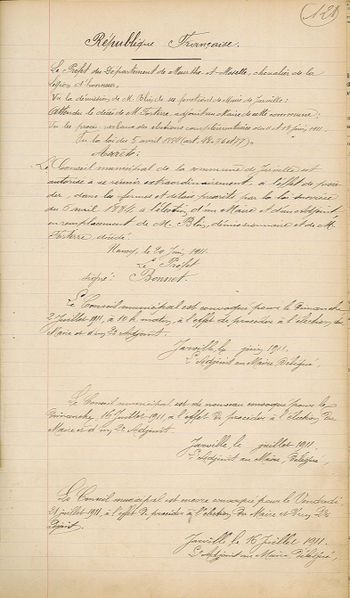 128
République Française.
Le Préfet du Département de Meurthe-et-Moselle, chevalier de la
Légion d'honneur,
Vu la démission de M. Blin de ses fonctions de Maire de Jarville;
Attendu le décès de M. Forterre, adjoint au Maire de cette commune;
Vu les procès-verbaux des élections complémentaires du et 18 juin 1911,
Vu la loi du 5 avril 1884 (art. 76 et 77).
Arrête:
Le Conseil municipal de la commune de Jarville est
autorisé à se réunir extraordinairement, à l'effet de procé-
der, dans les formes et délais prescrits par la loi
du 5 avril 1884, à l'élection d'un Maire et d'un Adjoint
en remplacement de M. Blin, démissionnaire et de M.
Forterre, décédé.
Nancy, le 20 juin 1911.
Le Préfet
signé: Bonnet.
Le Conseil municipal est convoqué pour le Dimanche
2 Juillet 1911, à 10 h matin, à l'effet de procéder à l'élection du
Maire et d'un 2e Adjoint.
Jarville, le juin 1911.
L'Adjoint au Maire Délégué,
Le Conseil municipal est de nouveau convoqué pour le
Dimanche 16 Juillet 1911, à l'effet de procéder à l'élection du
Maire et d'un 2e Adjoint.
Jarville, le juillet 1911.
L'Adjoint au Maire Délégué,
Le Conseil municipal est encore convoqué pour le Vendredi
21 juillet 1911, à l'effet de procéder à l'élection du Maire et d'un 2e
Adjoint.
Jarville, le 16 Juillet 1911.
L'Adjoint au Maire Délégué,